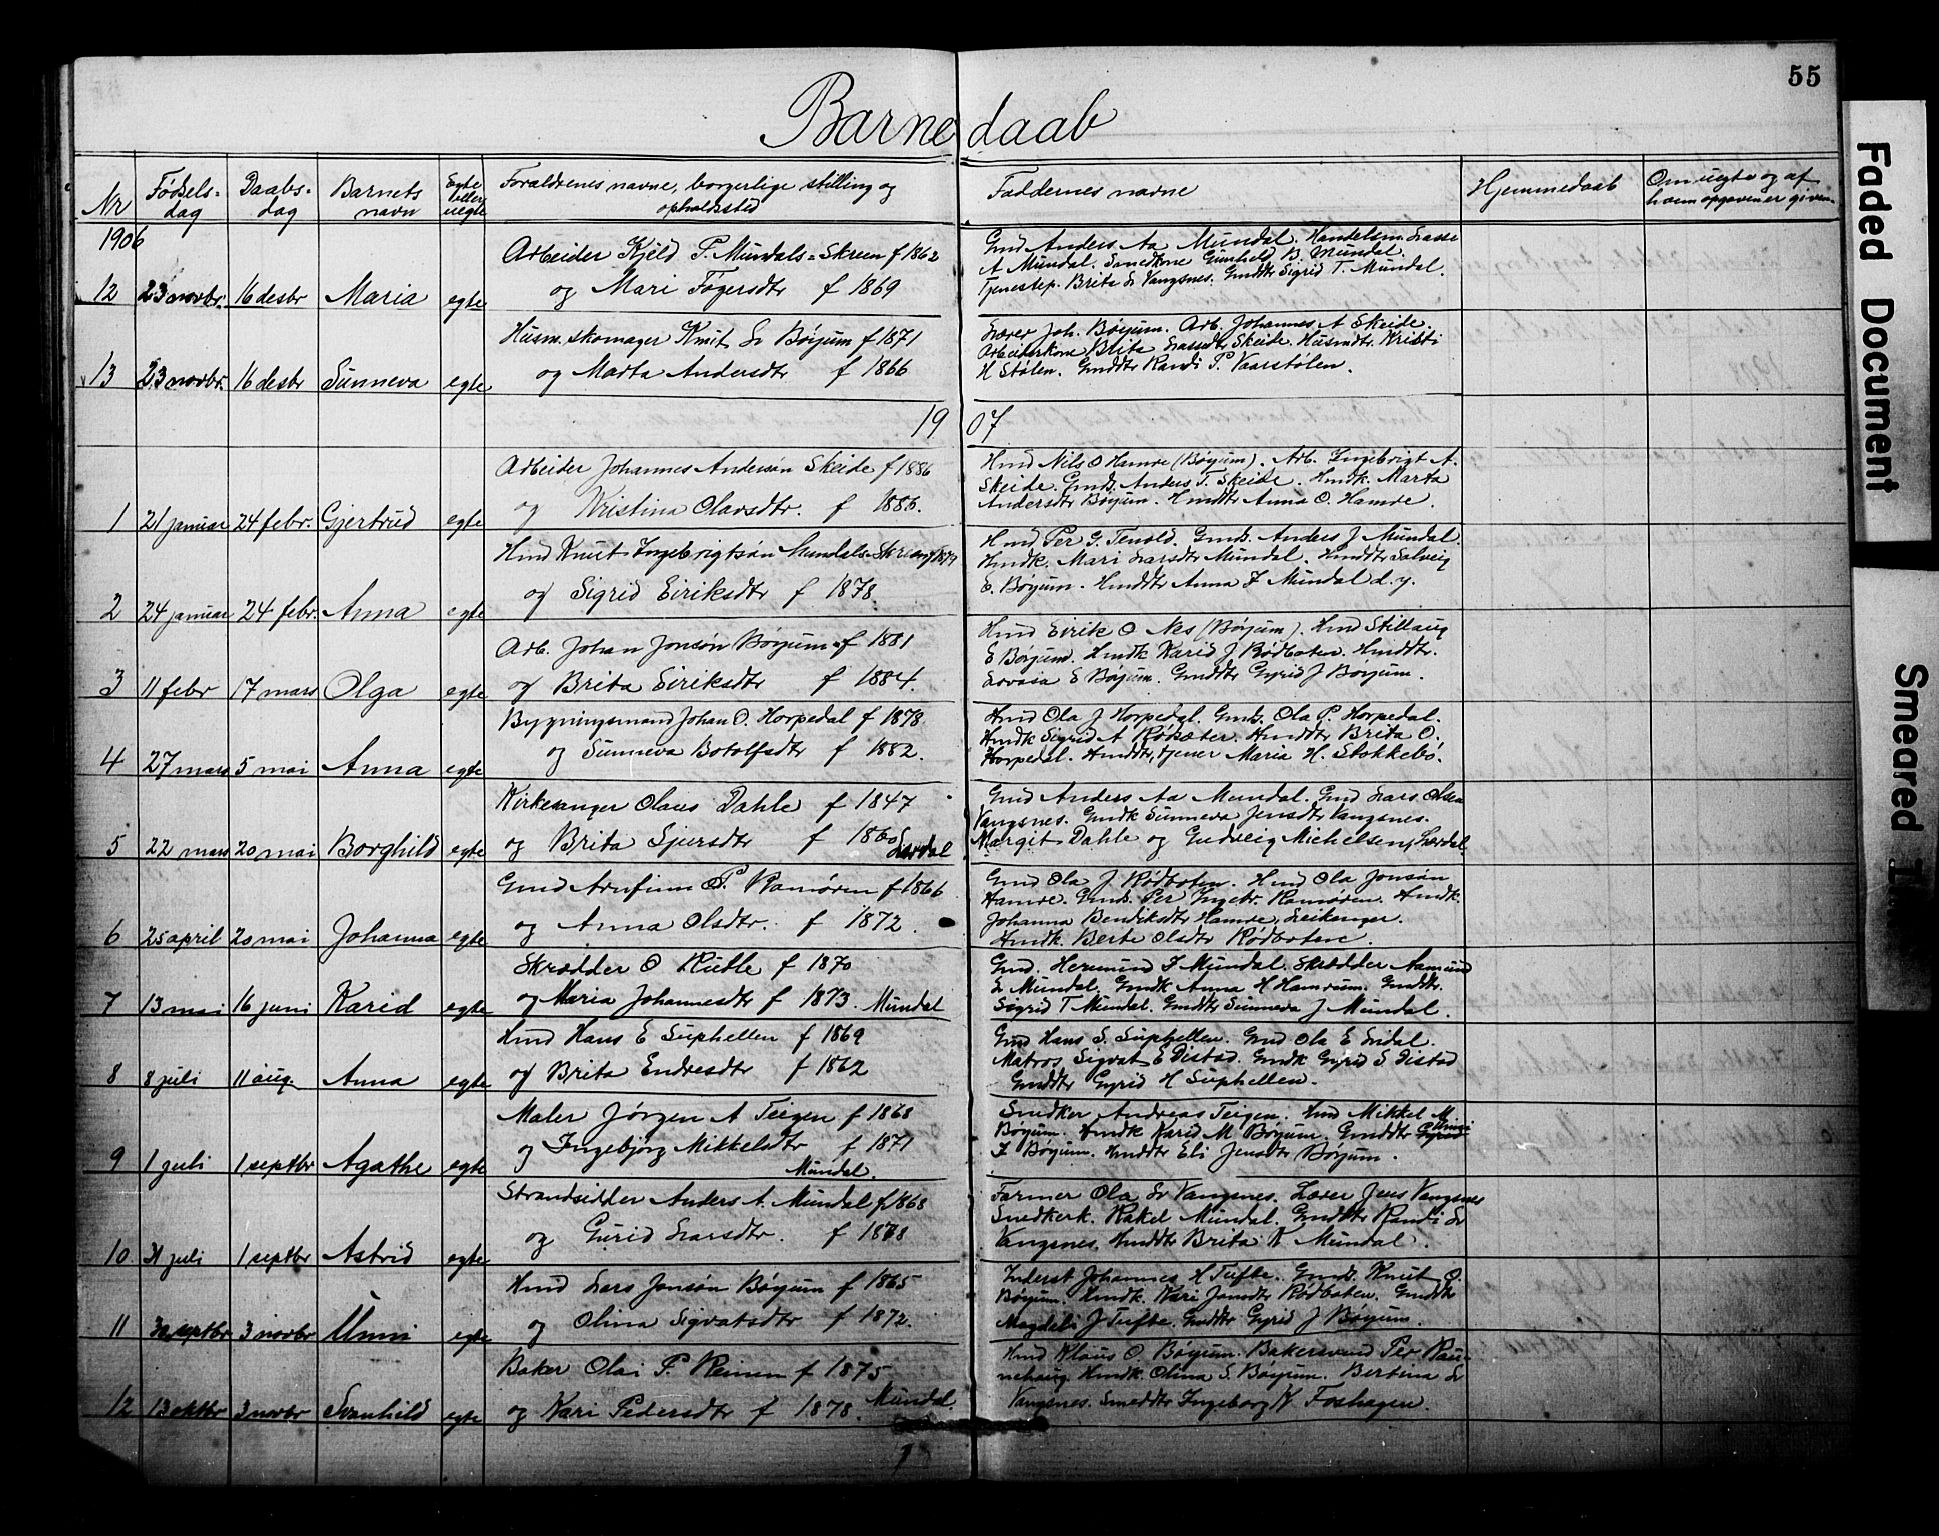 55
Barnedaab
Nr
Fødsels-
dag
Daabs-
dag
Barnets
navn
Egte
eller
uegte
Foraldrenes navne, borgerlige stilling og
opholdssted
Faddernes navne
Hjemmedaab
Om uegte og af
hvem opgaven er given
1906
12 23 novbr. 16 desbr Maria egte
Arbeider Kjeld P. Mundals-Skreen f 1862
og Mari Fogersdtr f 1869
Gmd Anders Aa Mundal. Handelsm. Lasse
A Mundal. Snedkone Gunhild B. Mundal.
Tjenestep. Brita L Vangsnes. Gmddtr Sigrid T. Mundal.
13 23 novbr. 16 desbr Sunneva egte
Husm. skomager Knut L Bøyum f 1871
og Marta Andersdtr f 1866
Lærer Joh. Bøyum. Arb. Johannes A Skeide.
Arbeiderkone Brita Lassedtr Skeide. Husmdtr. Kristi
H Stølen. Gmddtr Randi P. Vaarstølen.
1907
1 21 januar 24 febr. Gjertrud egte
Arbeider Johannes Andersøn Skeide f 1886
og Kristina Olavsdtr. f 1886.
Hmd Nils O Hamre (Bøyum). Arb. Ingebrigt A.
Skeide. Gmds. Anders T. Skeide. Hmdk. Marta
Andersdtr Bøyum. Hmddtr Anna O. Hamre.
2 24 januar 24 febr. Anna egte
Hmd Knut Ingebrigtsøn Mundals-Skreen
og Sigrid Eiriksdtr f 1878.
Hmd Per G. Tenold. Gmds. Anders J Mundal.
Hmdk. Mari Larsdtr Mundal. Hmddtr Salveig
E. Bøyum. Hmddtr Anna I Mundal d. y.
3 11 febr 17 mars Olga egte
Arb. Johan Jonsøn Bøyum f 1881
og Brita Eiriksdtr f 1884.
Hmd Eirik O Nes (Bøyum). Hmd Stillaug
E Bøyum. Hmdk Karid J Rødboten. Hmddtr.
Lovisa E Bøyum. Gmddtr Gyrid J Bøyum.
4 27 mars 5 mai Anna egte
Bygningsmand Johan O. Horpedal f 1878.
og Sunneva Botolfsdtr f 1882.
Hmd Ola J Horpedal. Gmds. Ola P. Horpedal.
Hmdk Sigrid A Rødsæter. Hmddtr Brita O.
Horpedal. Hmddtr, tjener Maria H. Stokkebø.
5 22 mars 20 mai Borghild egte
Kirkesanger Olaus Dahle f 1847
og Brita Sjursdtr f 1860 Lærdal
Gmd Anders Aa Mundal. Gmd Lars Olsen
Vangsnes. Gmdk Sunneva Jensdtr Vangsnes.
Margit Dahle og Gudveig Michelsen, Lærdal.
6 25 april 20 mai Johanna egte
Gmd Arnfinn P. Ramøren f 1866
og Anna Olsdtr. f 1872.
Gmd Ola J Rødboten. Hmd Ola Jonsøn
Hamre. Gmds. Per Ingebr. Ramøren. Hmdk.
Johanna Bendiksdtr Hamre, Leikanger.
Hmdk. Berte Olsdtr Rødboten.
7 13 mai 16 juni Karid egte
Skrædder O Rutle f 1870
og Maria Johannesdtr f 1873. Mundal
Gmd. Heremund I Mundal. Skrædder Aamund
L Mundal. Gmdk Anna H Hamrum. Gmddtr.
Sigrid T Mundal. Gmddtr Sunneva J Mundal.
8 8 juli 11 aug. Anna egte
Hmd Hans E Suphellen f 1869
og Brita Endresdtr f 1862
Gmd Hans S. Suphellen. Gmd Ola E
Matros Sigvat E Distad. Gmdk Gyrid S Distad
Gmddtr Gyrid H Suphellen.
9 1 juli 1 septbr Agathe egte
Maler Jørgen A Teigen f 1868
og Ingebjørg Mikkelsdtr f 1871
Mundal.
Snedker Andreas Teigen. Hmd Mikkel M.
Bøyum. Hmdk Karid M Bøyum. Gmddtr
I Bøyum. Hmddtr Eli Jensdtr Bøyum.
10 21 juli 1 septbr Astrid egte
Strandsidder Anders A. Mundal f 1868
og Gurid Larsdtr. f 1868
Farmer Ola L Vangsnes. Lærer Jens Vangsnes
Snedkerk. Rakel Mundal. Gmddtr Randi L
Vangsnes. Hmddtr Brita K Mundal.
11 septbr 3 novbr Unni egte
Hmd Lars Jonsøn Bøyum f 1865
og Olina Sigvatsdtr f 1872.
Inderst Johannes H Tufte. Gmds. Knut O.
Bøyum. Hmdk. Kari Jonsdtr Rødboten. Gmddtr
Magdeli J Tufte. Gmddtr Gyrid J Bøyum.
12 13 oktbr 3 novbr Svanhild egte
Baker Olai P. Reinen f 1875
og Kari Pedersdtr f 1878. Mundal.
Hmd Klaus O Bøyum. Bakersvend Per Rau-
nehaug. Hmdk. Olina S. Bøyum. Bertina L
Vangsnes. Smeddtr Ingeborg K Foshagen.
Faded Document
Smeared